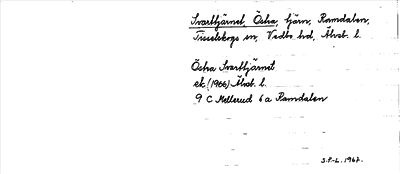 Svarttjärnet, Östra, tjärn, Ramdalen,
Tisselskogs sn, Vedbo hd, Älvsb. l.
Östra Svarttjärnet
ek (1966) Älvsb. l.
9 C Mellerud 6 a Ramdalen
S.F-L. 1967.